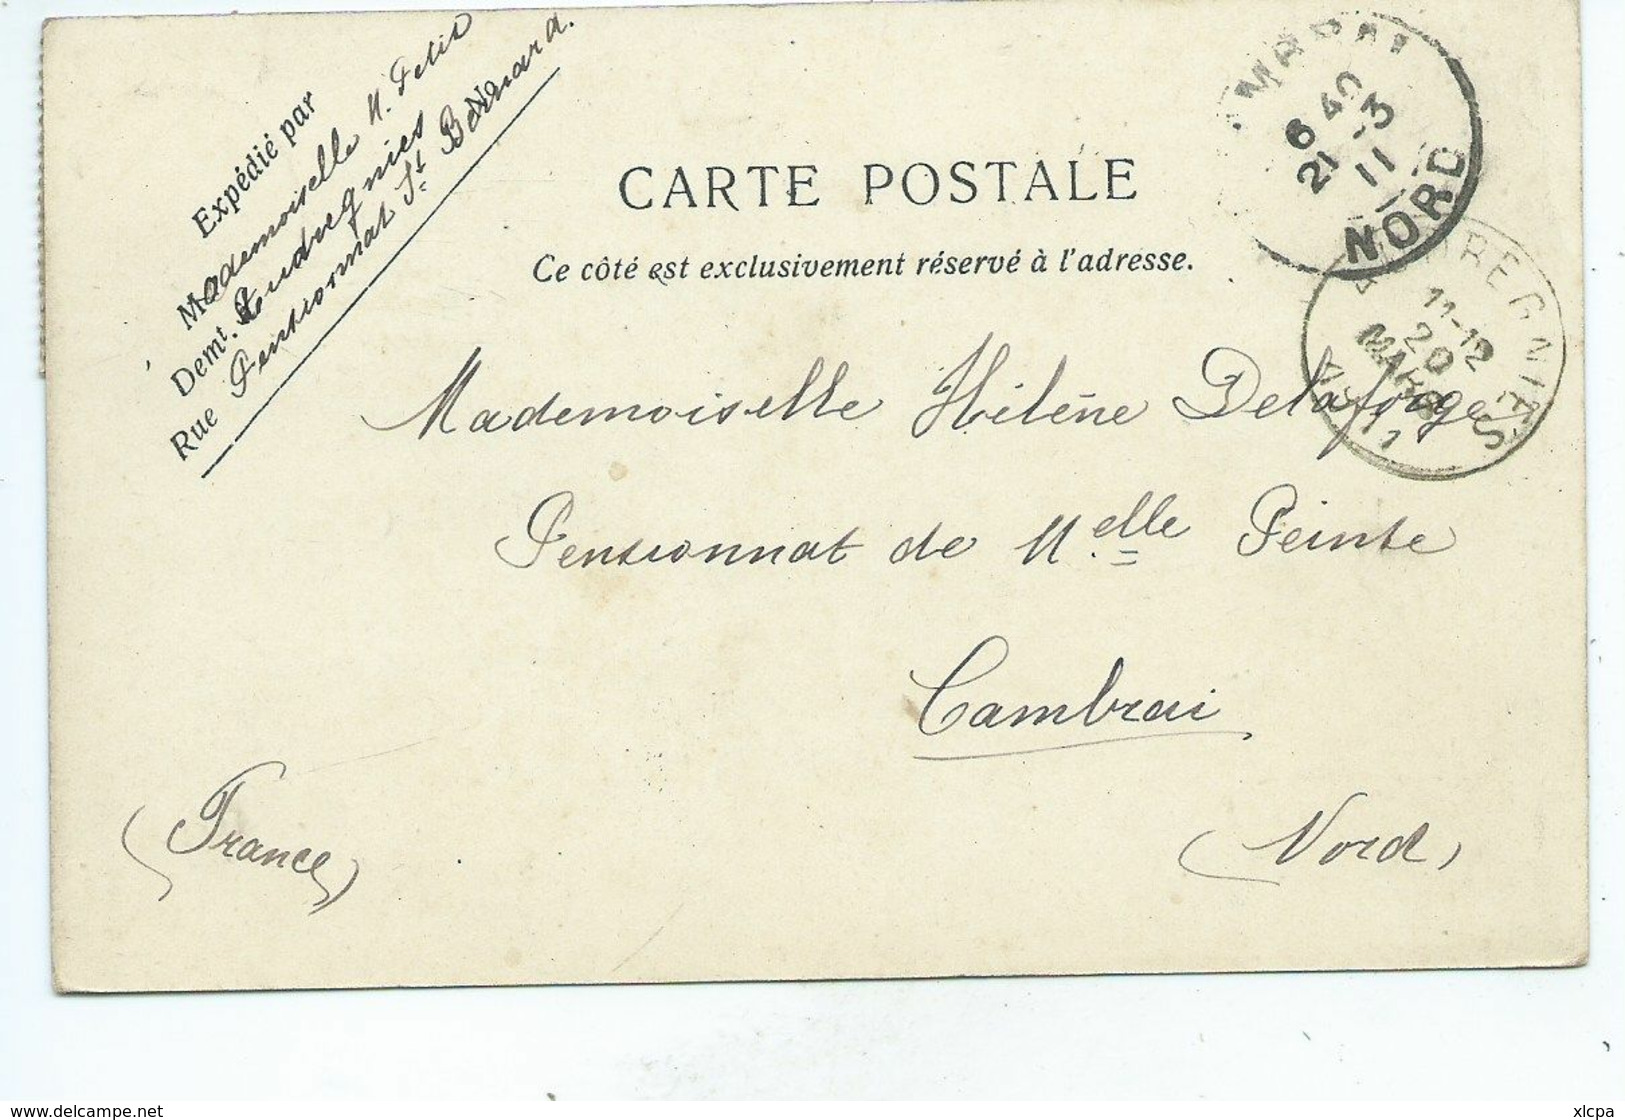 Expédié par
Mademoiselle M. Felix
Demt. à Audregnies
Rue Pensionnat St. Bernard. No
CARTE POSTALE
Ce côté est exclusivement réservé à l'adresse.
6 40
21 -3
11
NORD
11-12
20
MARS
Mademoiselle Hélène Delaforge
Pensionnat de Melle Peinte
Cambrai
(France)
(Nord)
www.delcampe.net
xlcpa